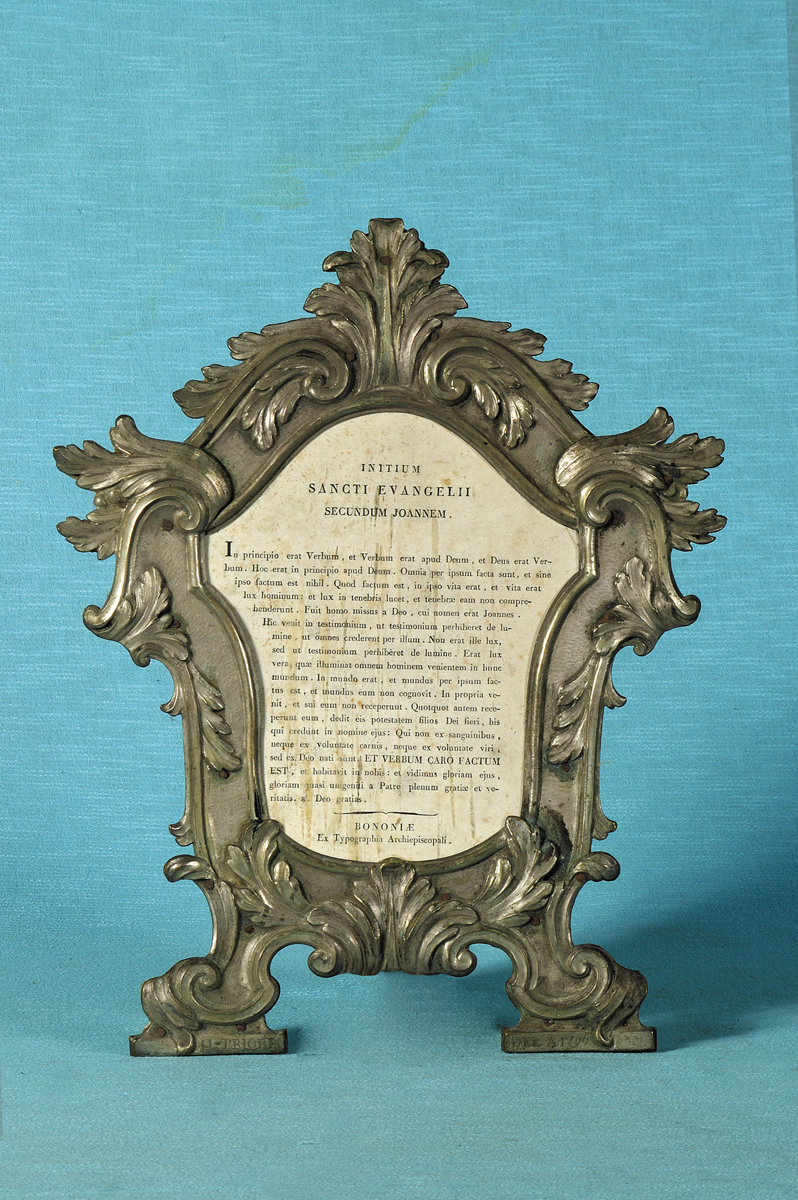 INITIUM
SANCTI EVANGELII
SECUNDUM JOANNEM.
In principio erat Verbum, et Verbum erat apud Deum, et Deus erat Ver-
bum. Hoc erat in principio apud Deum. Omnia per ipsum facta sunt, et sine
ipso factum est nihil. Quod factum est, in ipso vita erat, et vita erat
lux hominum: et lux in tenebris lucet, et tenebræ eam non compre-
henderunt. Fuit homo missus a Deo, cui nomen erat Joannes.
Hic venit in testimonium, ut testimonium perhiberet de lu-
mine, ut omnes crederent per illum. Non erat ille lux,
sed ut testimonium perhiberet de lumine. Erat lux
vera, quæ illuminat omnem hominem venientem in hunc
mundum. In mundo erat, et mundus per ipsum fac-
tus est, et mundus eum non cognovit. In propria ve-
nit, et sui eum non receperunt. Quotquot autem rece-
perunt eum, dedit eis potestatem filios Dei fieri, his
qui credunt in nomine ejus: Qui non ex sanguinibus,
neque ex voluntate carnis, neque ex voluntate viri,
sed ex Deo nati sunt. ET VERBUM CARO FACTUM
EST, et habitavit in nobis: et vidimus gloriam ejus,
gloriam quasi unigeniti a Patre plenum gratiæ et ve-
ritatis. ℟. Deo gratias.
BONONIÆ
Ex Typographia Archiepiscopali.